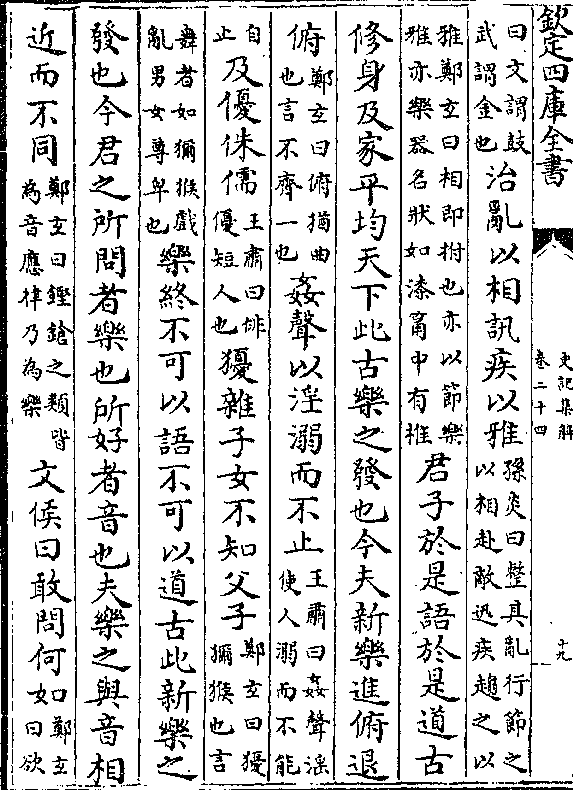 欽定四庫全書
史記集解
卷二十四
十九
曰文謂鼓武謂金也治亂以相訊疾以雅孫炎曰整其亂行節之以相赴敵迅疾趨之以
雅鄭玄曰相即拊也亦以節樂雅亦樂器名狀如漆筩中有椎君子於是語於是道古
修身及家平均天下此古樂之發也今夫新樂進俯退
俯鄭玄曰俯猶曲也言不齊一也姦聲以淫溺而不止王肅曰姦聲淫使人溺而不能
自止及優侏儒王肅曰俳優短人也獶雜子女不知父子鄭玄曰獶獼猴也言
舞者如獼猴戲亂男女尊卑也樂終不可以語不可以道古此新樂之
發也今君之所問者樂也所好者音也夫樂之與音相
近而不同鄭玄曰鏗鎗之類皆為音應律乃為樂文侯曰敢問何如鄭玄曰欲